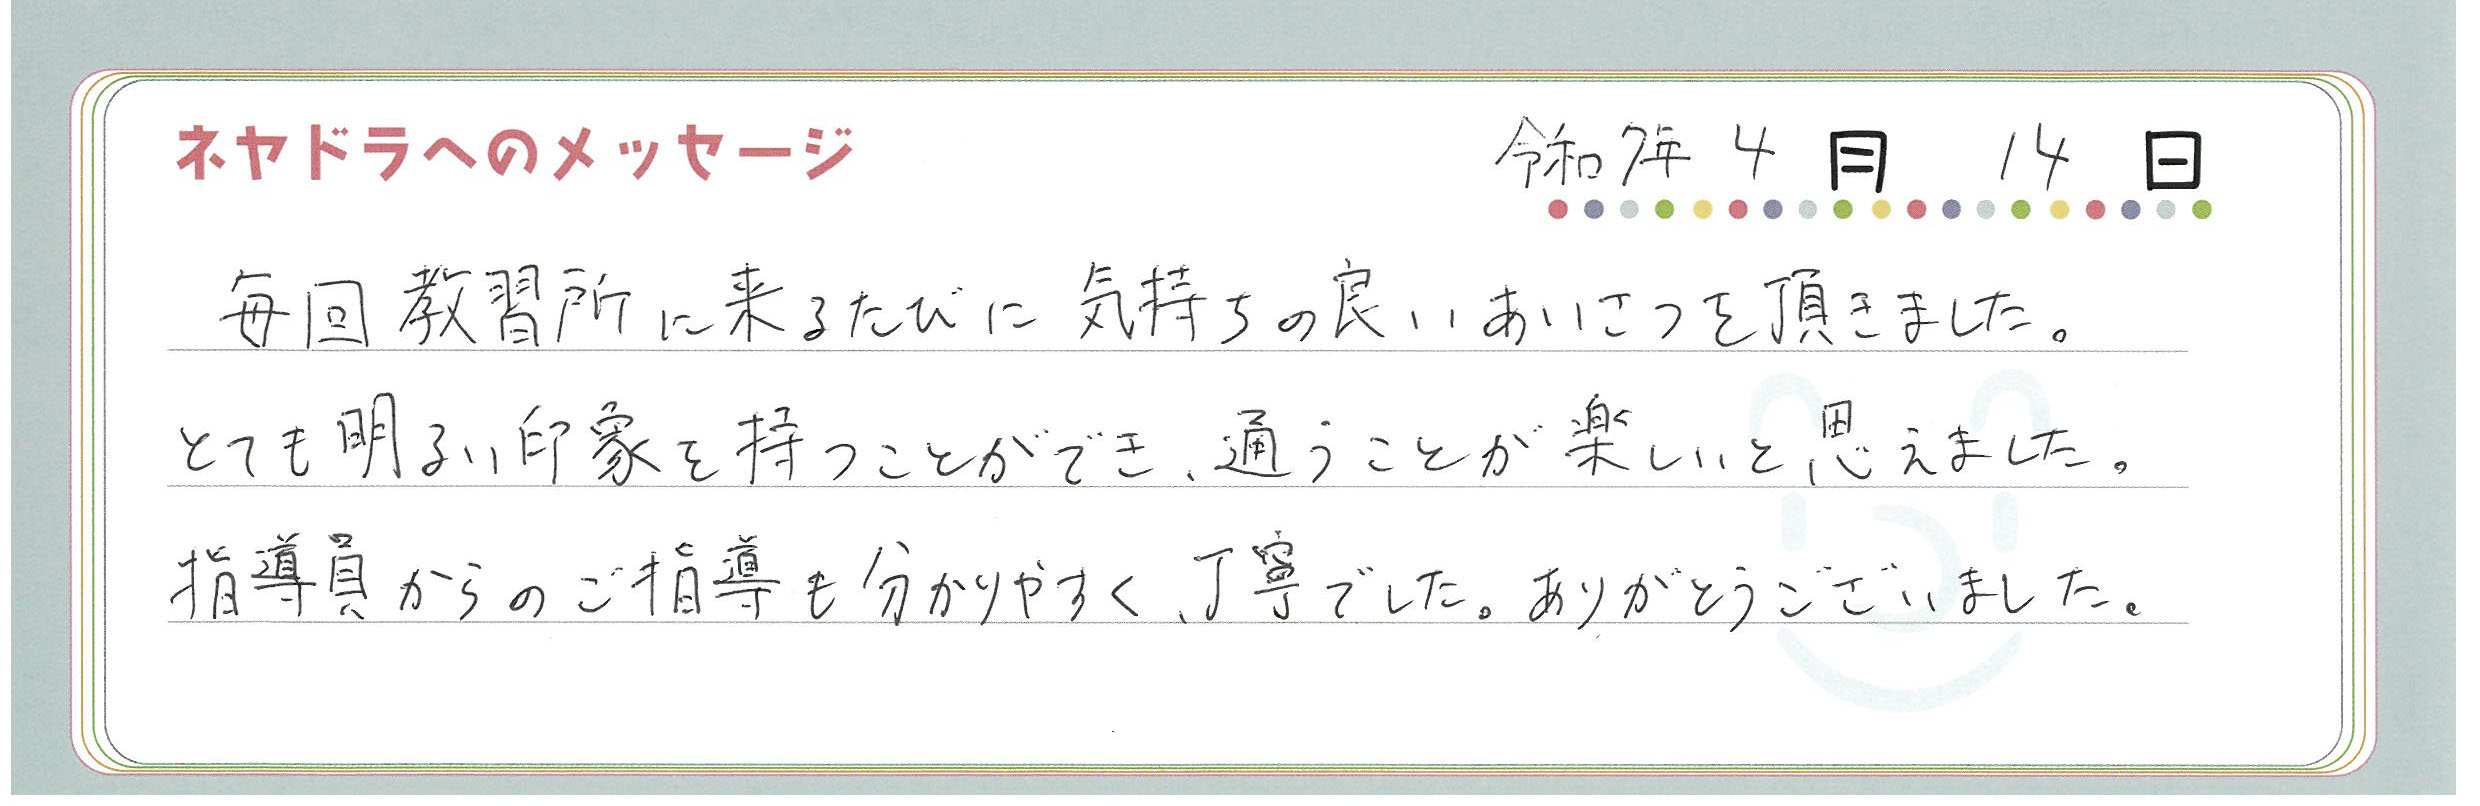 ネヤドラへのメッセージ
令和7年 4 月 14 日
毎回教習所に来るたびに気持ちの良いあいさつを頂きました。
とても明るい印象を持つことができ、通うことが楽しいと思えました。
指導員からのご指導も分かりやすく、丁寧でした。ありがとうございました。